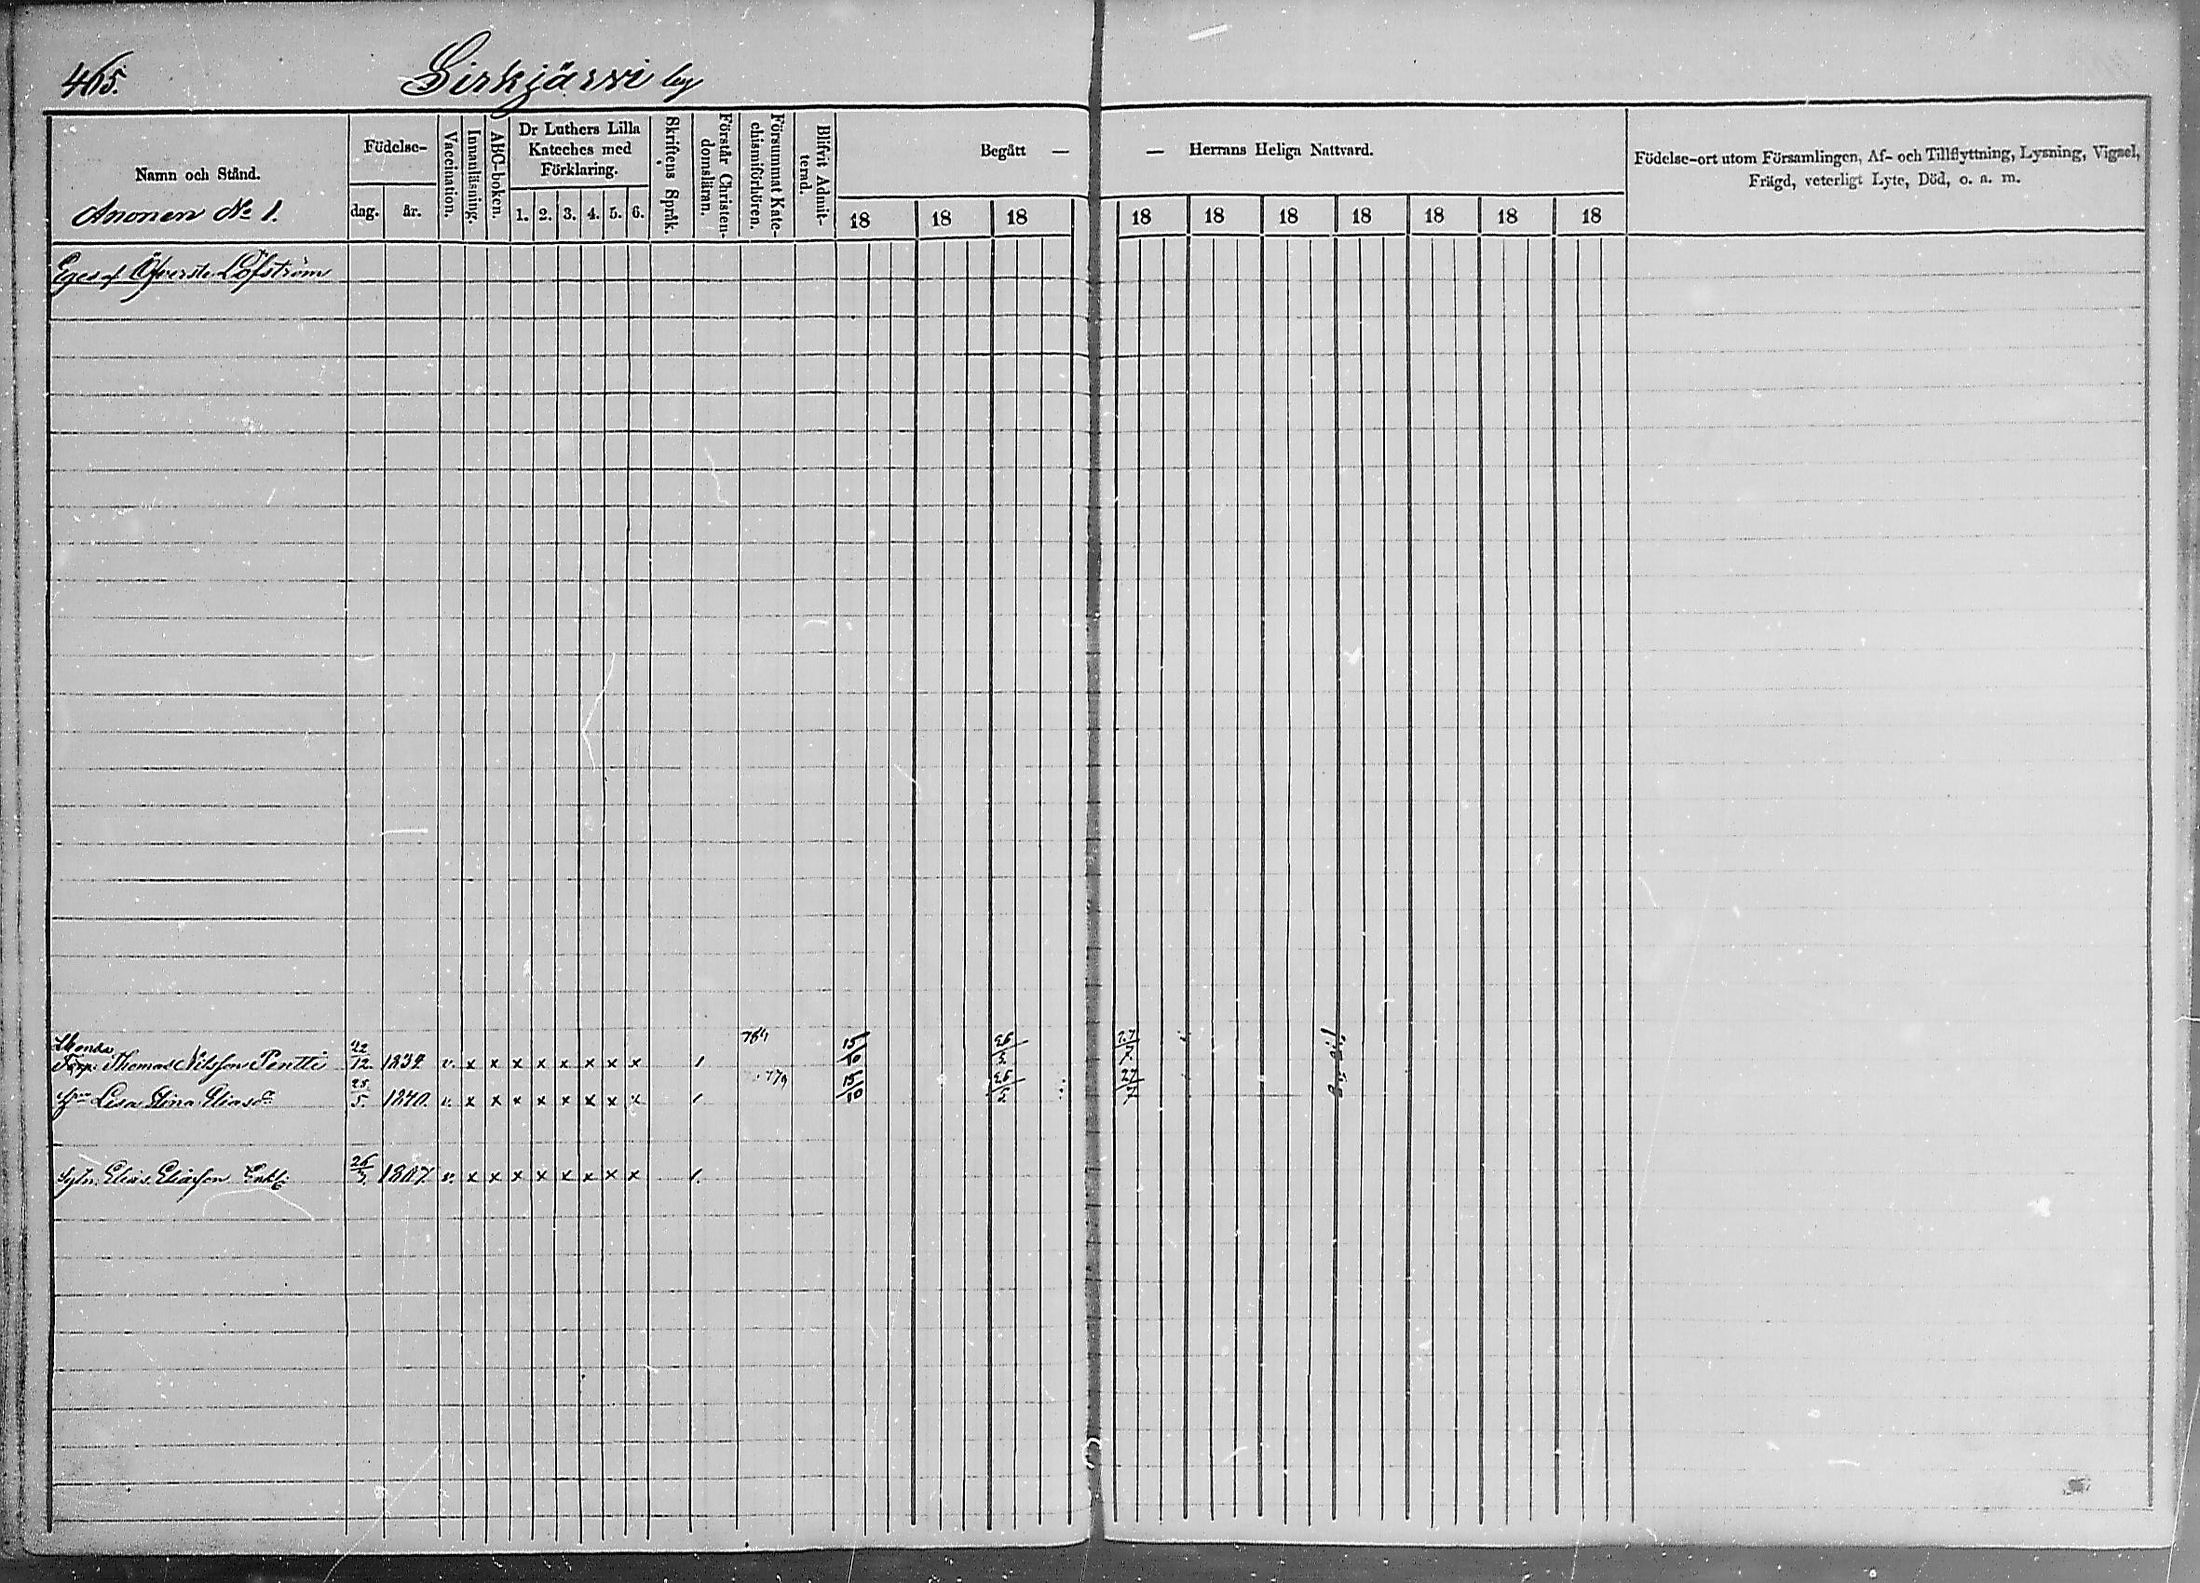 465.
Sirkjärwi by
Namn och Stånd.
Anonen No 1.
Födelse-
dag. år.
Vaccination.
Innanläsning.
ABC-boken.
Dr Luthers Lilla
Kateches med
Förklaring.
1. 2. 3. 4. 5. 6.
Skriftens Språk.
Förstår Christen-
domsläran.
Försummat Kate-
chismiförhören.
Blifvit Admit-
terad.
Begått — — Herrans Heliga Nattvard.
18 18 18 18 18 18 18 18 18 18
Födelse-ort utom Församlingen, Af- och Tillflyttning, Lysning, Vigsel,
Frägd, veterligt Lyte, Död, o. a. m.
Eges af Öfverste Löfström
Thomas Nilsson Pentti 22/12. 1834 v. x x x x x x x x 1 15/10 27/7
Lisa Stina Eliasdr 25/5. 1840. v. x x x x x x x x 1 15/10 27/7
Sytn. Elias Eliasson Enkl. 26/3. 1807. v. x x x x x x x x 1.